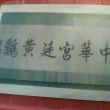 中華宮廷黃鷄